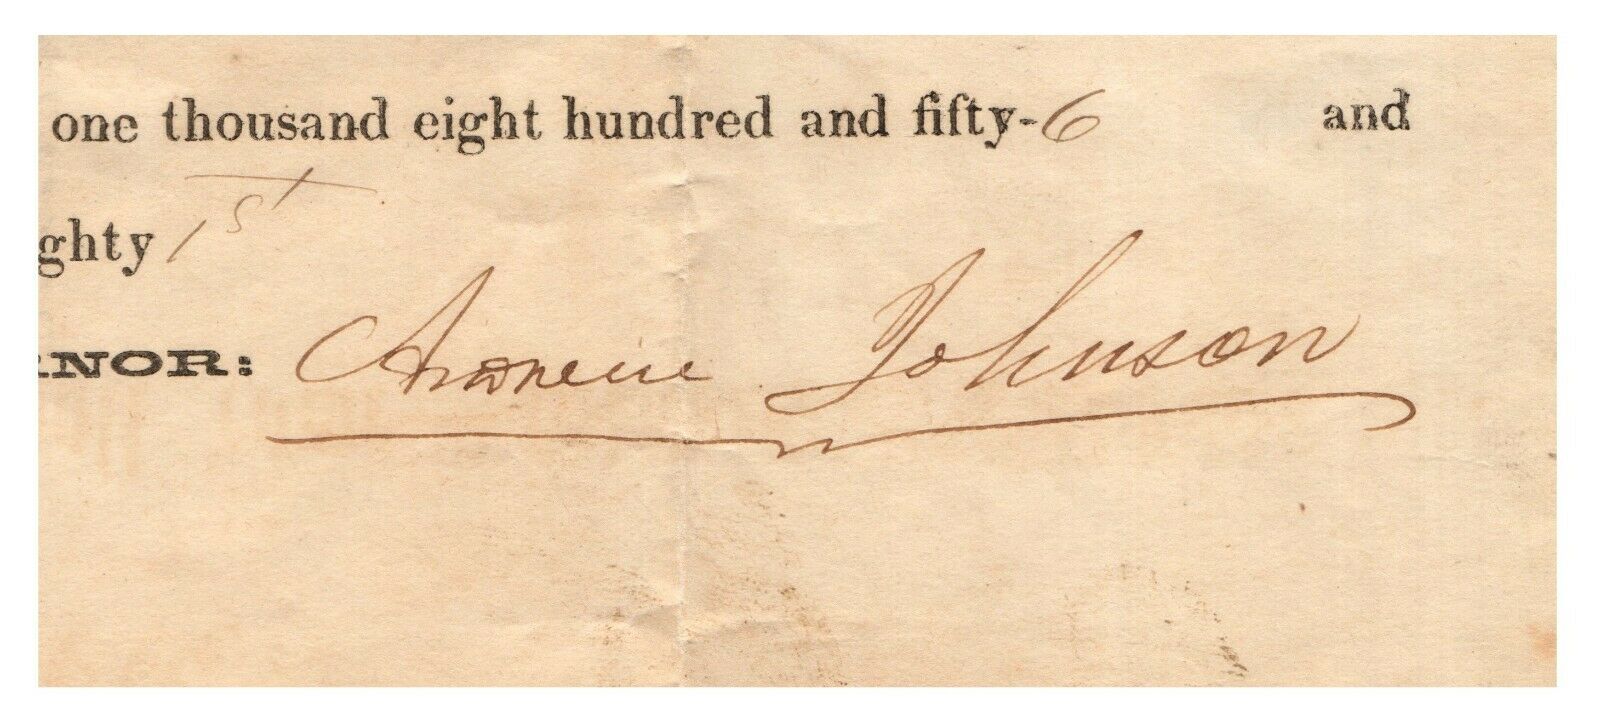 one thousand eight hundred and fifty-6 and
ghty 1st
RNOR: Andrew Johnson